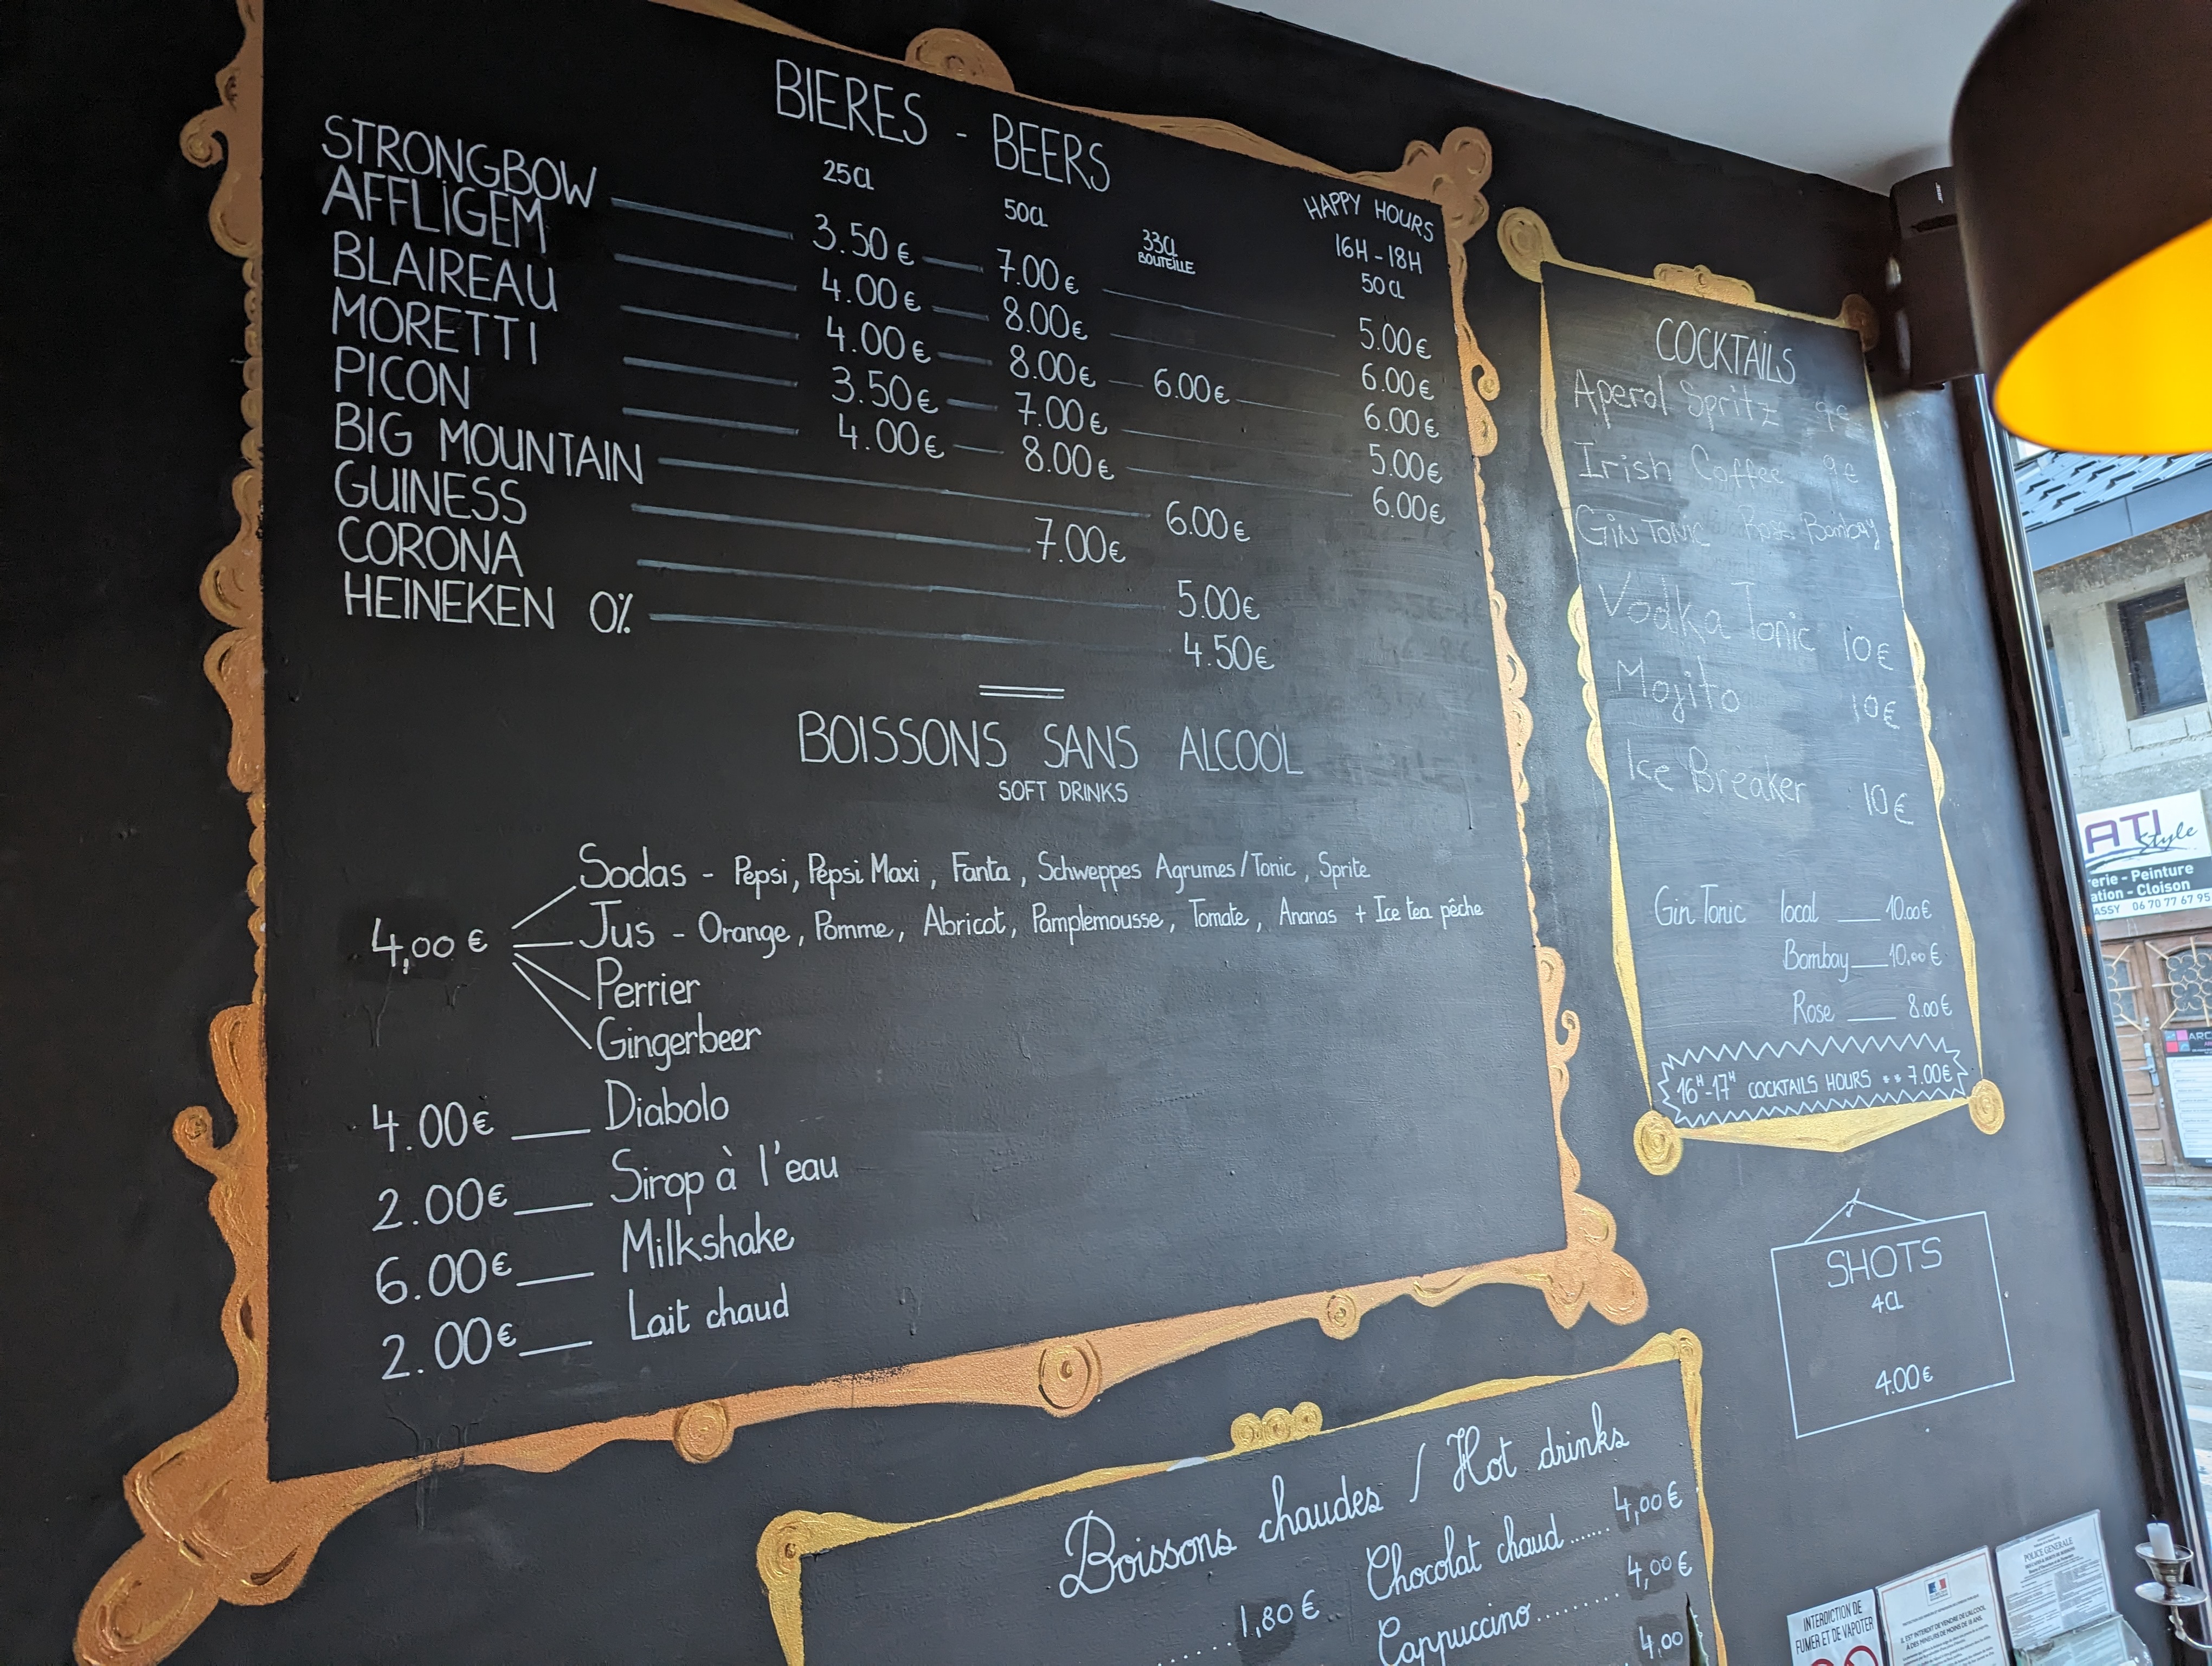 BIERES - BEERS
25CL 50CL 33CL BOUTEILLE HAPPY HOURS 16H-18H 50CL
STRONGBOW 3.50€ 7.00€ 5.00€
AFFLIGEM 4.00€ 8.00€ 6.00€
BLAIREAU 4.00€ 8.00€ 6.00€ 6.00€
MORETTI 3.50€ 7.00€ 5.00€
PICON 4.00€ 8.00€ 6.00€
BIG MOUNTAIN 6.00€
GUINESS 7.00€
CORONA 5.00€
HEINEKEN 0% 4.50€
BOISSONS SANS ALCOOL
SOFT DRINKS
4,00€
Sodas - Pepsi, Pepsi Maxi, Fanta, Schweppes Agrumes/Tonic, Sprite
Jus - Orange, Pomme, Abricot, Pamplemousse, Tomate, Ananas + Ice tea pêche
Perrier
Gingerbeer
4.00€ Diabolo
2.00€ Sirop à l'eau
6.00€ Milkshake
2.00€ Lait chaud
COCKTAILS
Aperol Spritz 9€
Irish Coffee 9€
Gin Tonic Rose Bombay
Vodka Tonic 10€
Mojito 10€
Ice Breaker 10€
Gin Tonic local 10.00€
Bombay 10.00€
Rose 8.00€
16H-17H COCKTAILS HOURS ** 7.00€
SHOTS
4CL
4.00€
Boissons chaudes / Hot drinks
1,80€
Chocolat chaud ...... 4,00€
Cappuccino ......... 4,00€
4,00
ATI
Style
erie - Peinture
ation - Cloison
ASSY 06 70 77 67 95
ARC
INTERDICTION DE
FUMER ET DE VAPOTER
IL EST INTERDIT DE VENDRE DE L'ALCOOL
À DES MINEURS DE MOINS DE 18 ANS
POLICE GENERALE